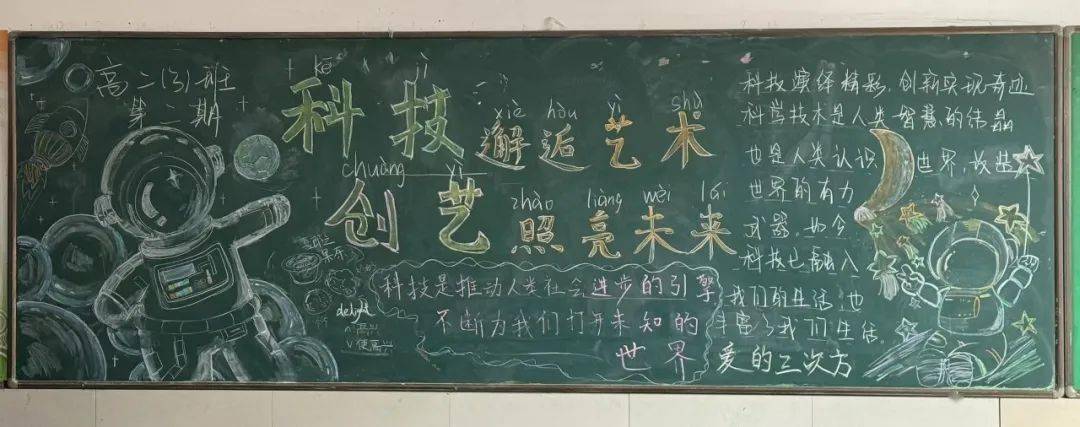 高二(3)班
第二期
kē jì
科技
xiè hòu yì shù
邂逅艺术
chuàng yì
创艺
zhào liàng wèi lái
照亮未来
科技是推动人类社会进步的引擎
不断为我们打开未知的
世界
delight
n 高兴
v 使高兴
科技演绎精彩,创新实现奇迹
科学技术是人类智慧的结晶
也是人类认识世界,改造
世界的有力
武器,如今
科技已融入
我们的生活,也
丰富了我们生活。
爱的三次方